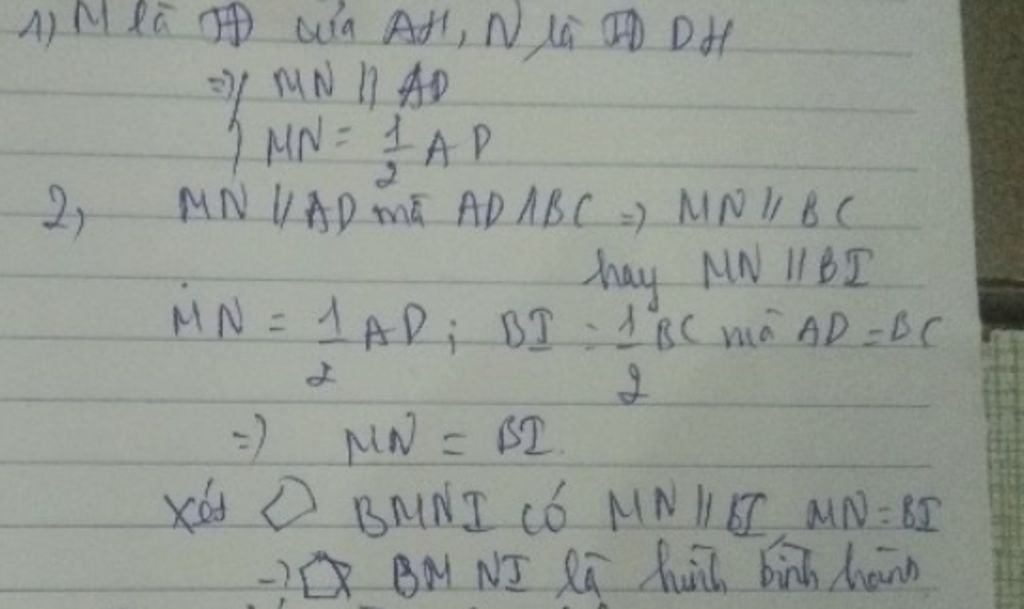 1) M là TĐ của AH, N là TĐ DH
=> MN // AD
MN = 1/2 AD
2, MN // AD mà AD // BC => MN // BC
hay MN // BI
MN = 1/2 AD ; BI = 1/2 BC mà AD = BC
=> MN = BI.
Xét ◇ BMNI có MN // BI, MN = BI
=> BMNI là hình bình hành